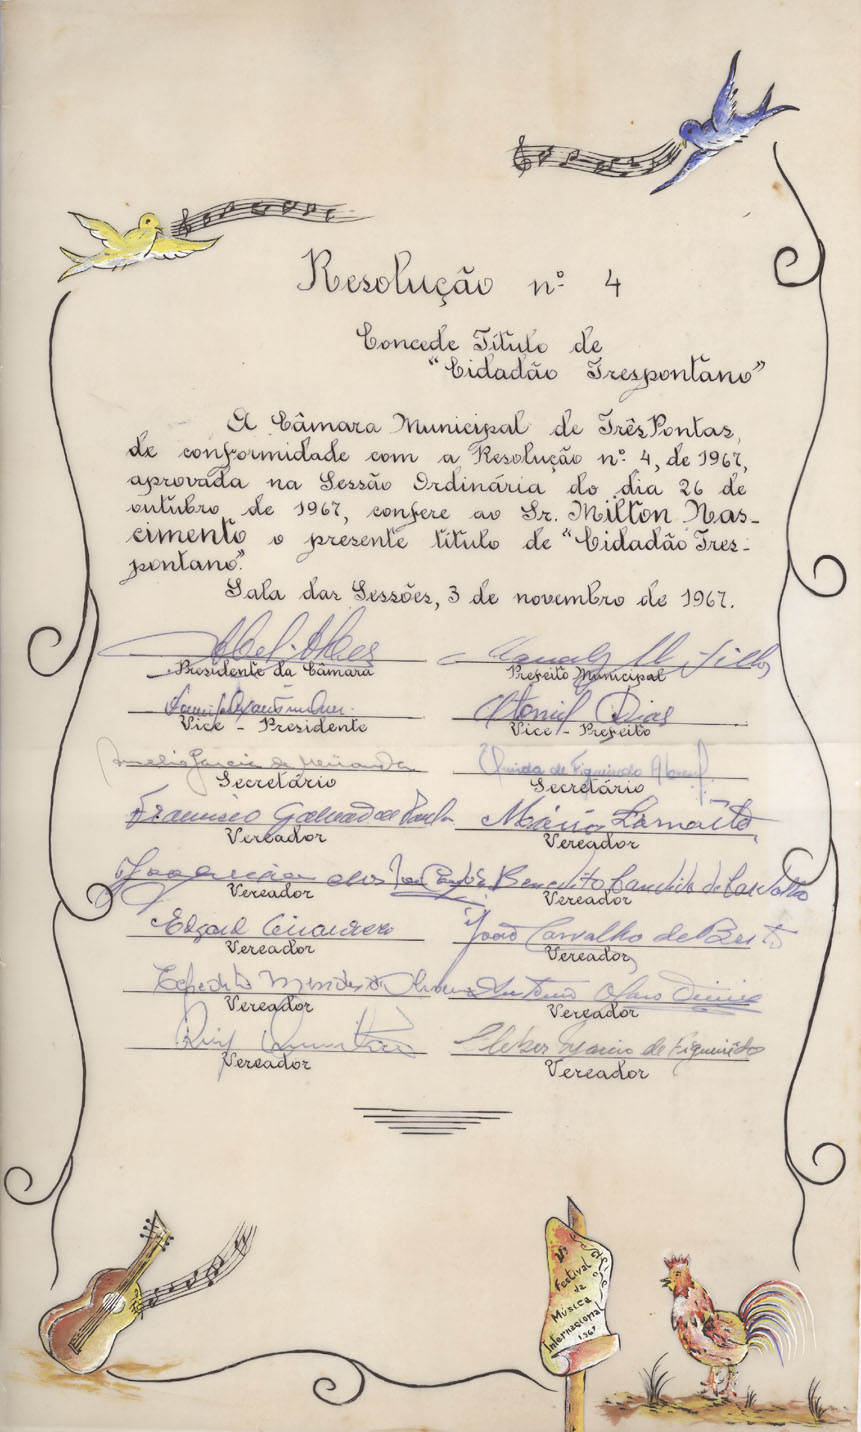 Resolução nº 4
Concede Título de
"Cidadão Trespontano"
A Câmara Municipal de Três Pontas,
de conformidade com a Resolução nº 4, de 1967,
aprovada na Sessão Ordinária do dia 26 de
outubro de 1967, confere ao Sr. Milton Nas-
cimento o presente título de "Cidadão Tres-
pontano".
Sala das Sessões, 3 de novembro de 1967.
Presidente da Câmara
Prefeito Municipal
Vice - Presidente
Otoniel Dias
Vice - Prefeito
Amelio Garcia de Miranda
Secretário
de Figueiredo
Secretário
Francisco
Vereador
Mário
Vereador
Joaquim dos
Vereador
Benedito de Carvalho
Vereador
Edgard
Vereador
João Carvalho de Brito
Vereador
Mendes de
Vereador
Antonio
Vereador
Ruy
Vereador
de Figueiredo
Vereador
Festival
da
Música
Internacional
1967